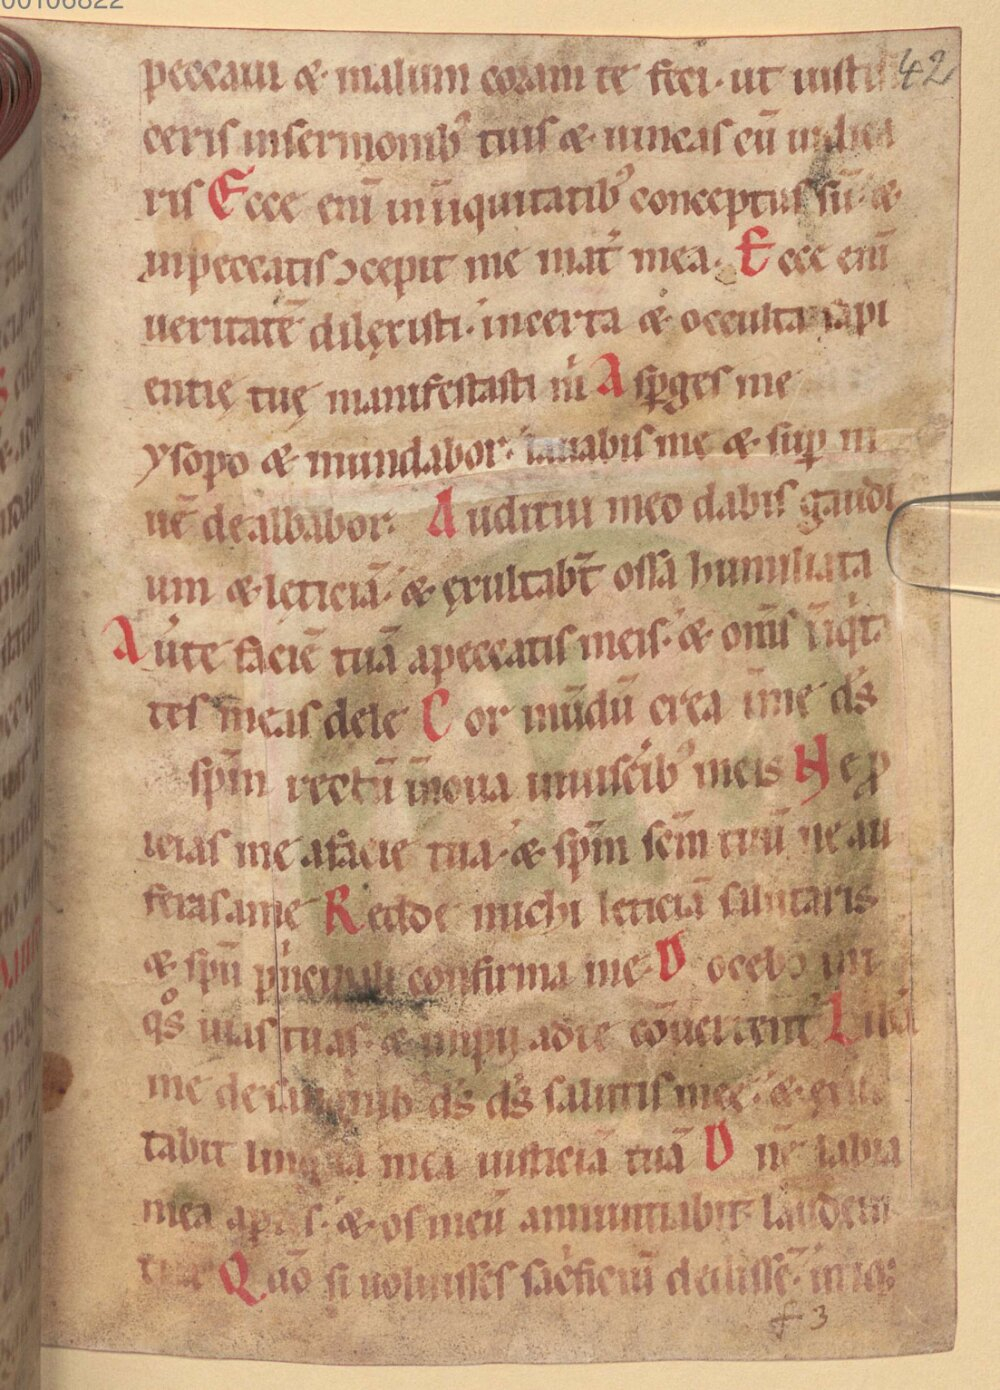 00106822
42
peccaui & malum coram te feci· ut iusti
ceris insermonibꝰ tuis & uincas cū iudica
ris Ecce enī in īiquitatibꝰ conceptus sū· &
inpeccatis ɔcepit me mat̄ mea· Ecce enī
ueritatē dilęxisti· incerta & occulta sapi
entię tuę manifestasti m̄ Asp̱ges me
ysopo & mundabor· lauabis me & sup̱ ni
uē dealbabor· Auditui meo dabis gaudi
um & lęticiā· & exultabt̄ ossa humiliata
Auͥte faciē tuā apeccatis meis· & om̄s īiqͥta
tes meas dele Cor mūdū crea ī me ds̄
sp̄m rectū īnoua inuiscͥibꝰ meis Ne ꝓ
icias me afacie tua· & sp̄m sc̄m tuū ne au
feras ame Redde michi lęticiā salutaris
& spū pͥncipali confirma me Docebo ini
qͦs uias tuas· & impii adte cōuertent̄ Libͣa
me desanguinibꝰ ds̄ ds̄ salutis meę· & exul
tabit lingua mea iusticiā tuā Dn̄e labia
mea aperies· & os meū annuntiabit laudem
tuā Qm̄o si uoluisses sacͥficiū dedissē· utiqꝫ
f 3